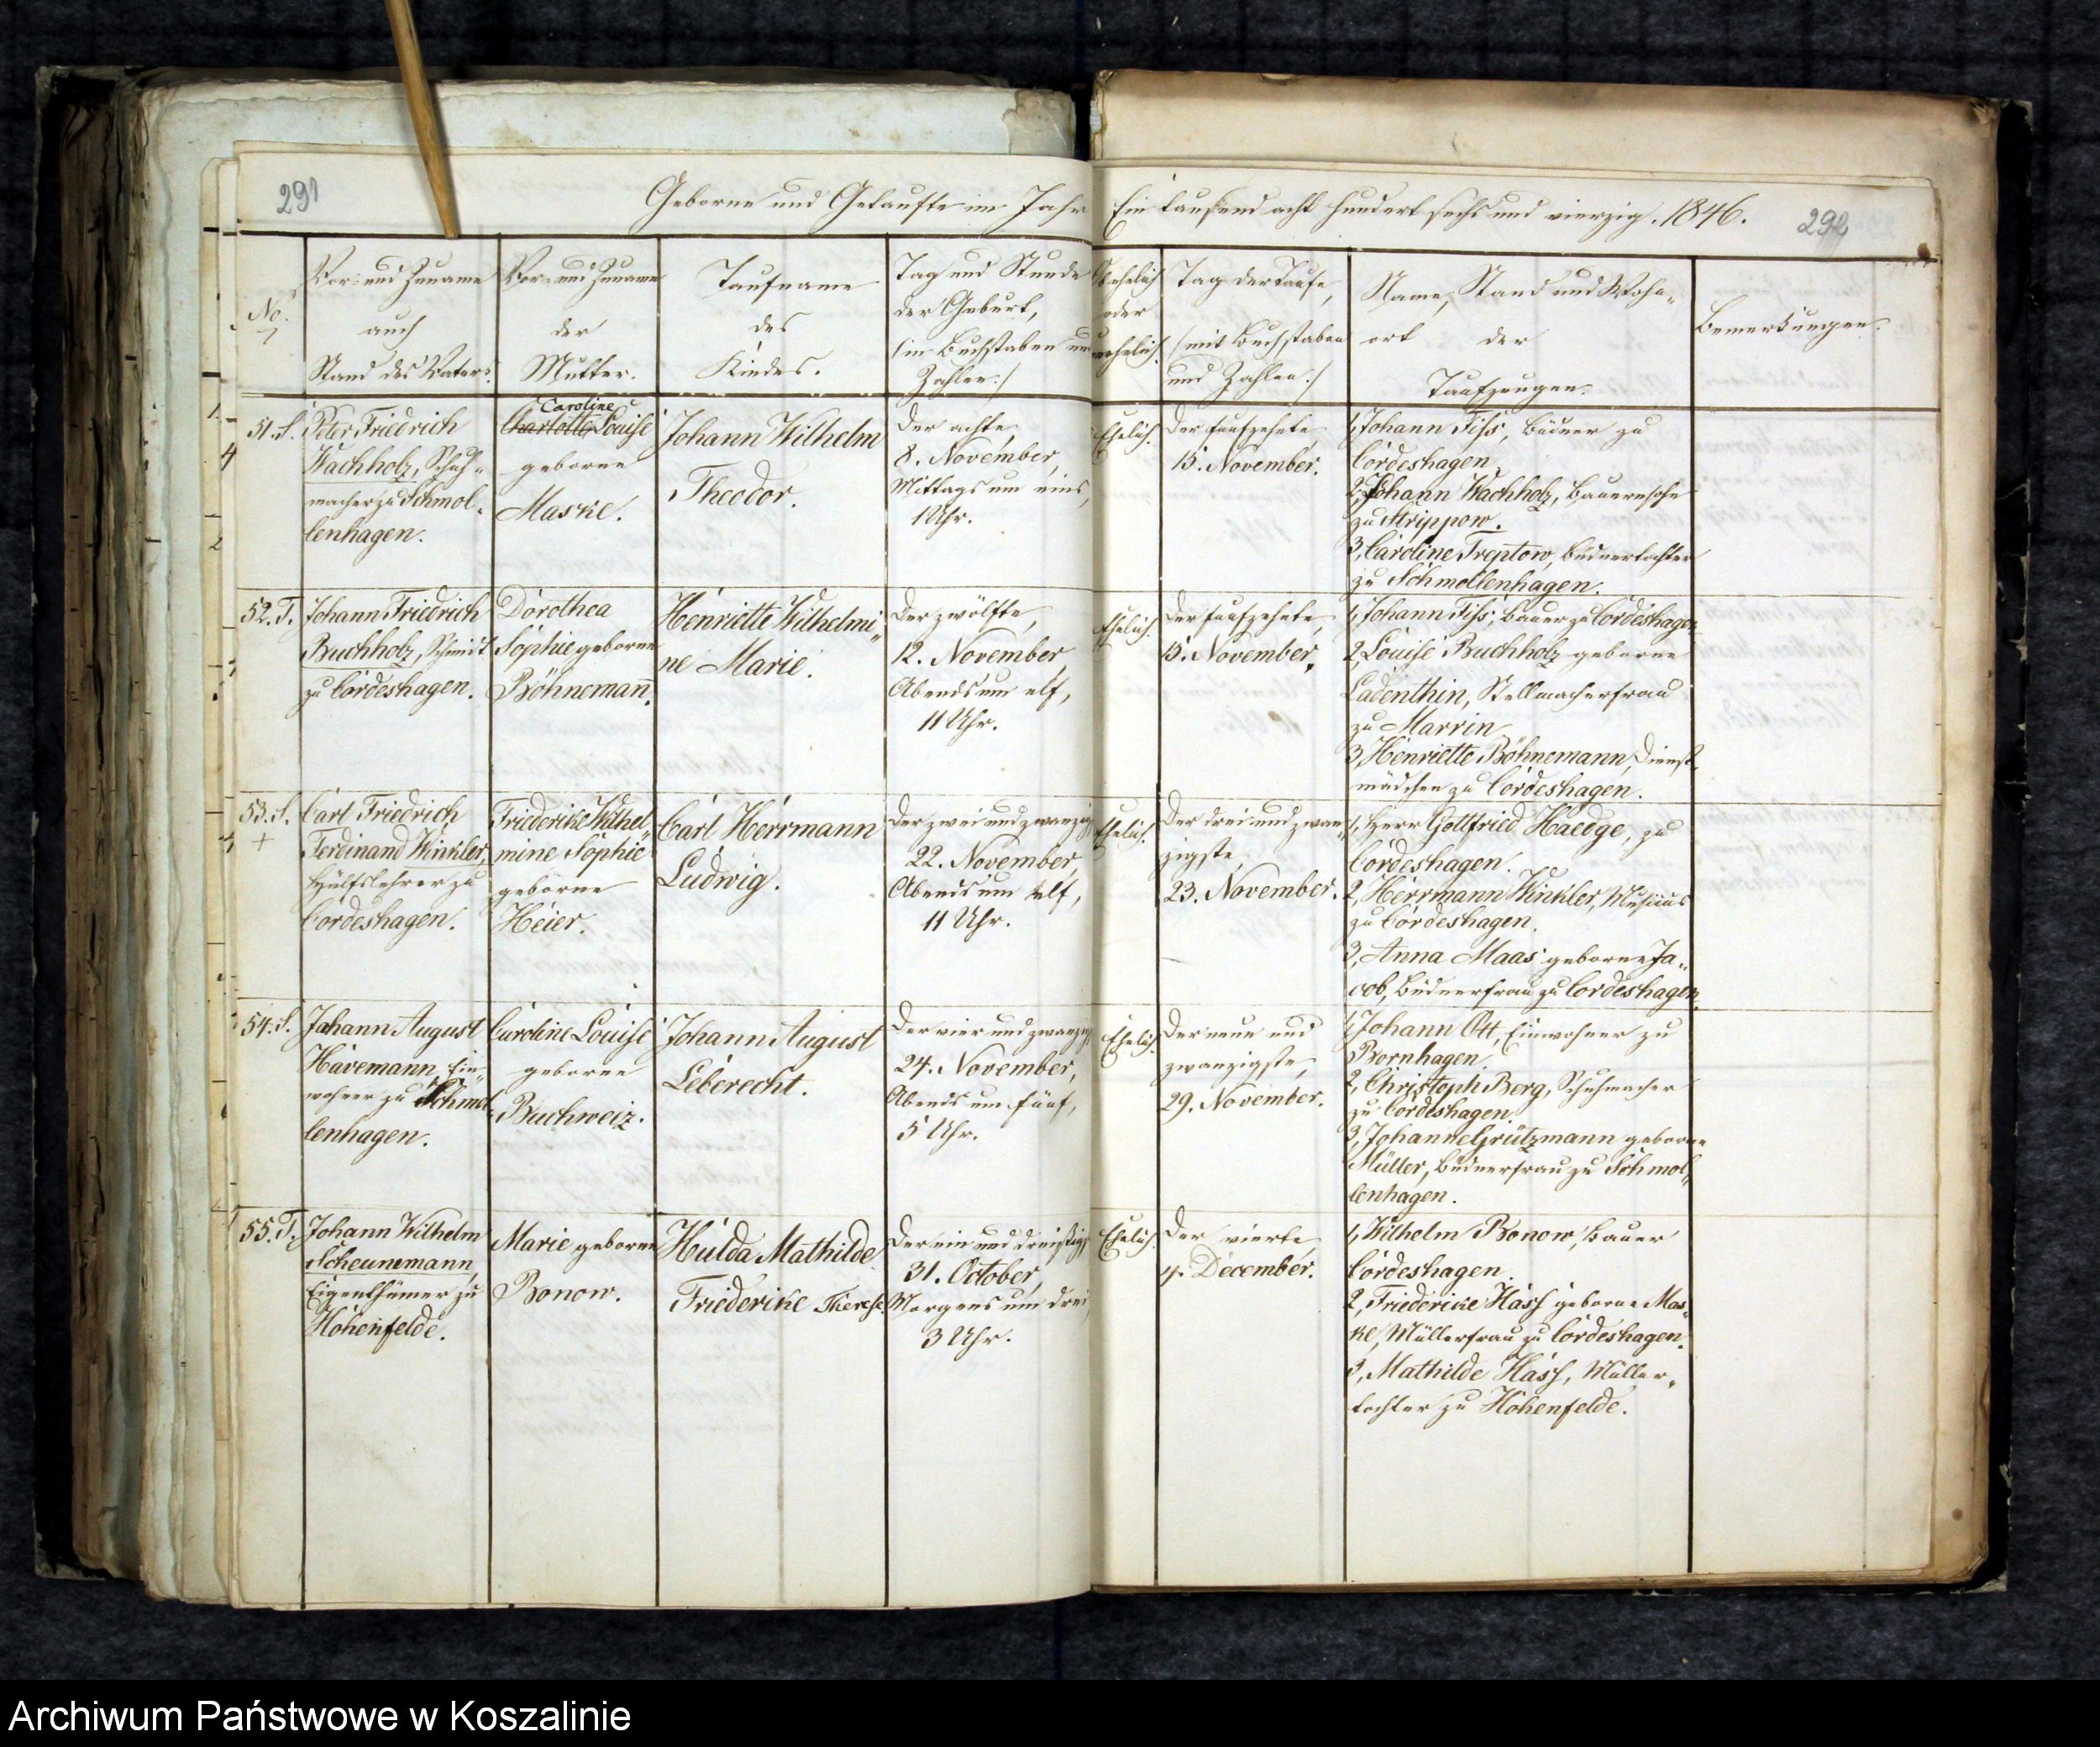 291
Geborne und Getaufte im Jahr Ein tausend acht hundert sechs und vierzig. 1846.
292
No.
Vor- und Zuname
auch
Stand des Vaters.
Vor- und Zuname
der
Mutter.
Taufname
des
Kindes.
Tag und Stunde
der Geburt,
(in Buchstaben und
Zahlen.)
Ob ehelich
oder
unehelich.
Tag der Taufe,
(mit Buchstaben
und Zahlen.)
Name, Stand und Wohn-
ort der
Taufzeugen.
Bemerkungen.
51. S.
Peter Friedrich
Wachholz, Schuh-
macher zu Schmol-
lenhagen.
Caroline
Charlotte Louise
geborne
Maske.
Johann Wilhelm
Theodor.
Der achte,
8. November,
Mittags um eins,
1 Uhr.
Ehelich.
Der funfzehnte,
15. November.
1, Johann Fiss, Büdner zu
Cordeshagen.
2, Johann Wachholz, Bauernsohn
zu Strippow.
3, Caroline Treptow, Büdnertochter
zu Schmollenhagen.
52. T.
Johann Friedrich
Buchholz, Schmidt
zu Cordeshagen.
Dorothea
Sophie geborne
Böhnemann.
Henriette Wilhelmi-
ne Marie.
Der zwölfte,
12. November,
Abends um elf,
11 Uhr.
Ehelich.
Der funfzehnte,
15. November.
1, Johann Fiss, Bauer zu Cordeshagen
2, Louise Buchholz geborne
Ladenthin, Stellmacherfrau
zu Marrin
3, Henriette Böhnemann, Dienst-
mädchen zu Cordeshagen.
53. S.
+
Carl Friedrich
Ferdinand Winkler,
Hülfslehrer zu
Cordeshagen.
Friederike Wilhel-
mine Sophie
geborne
Heier.
Carl Herrmann
Ludwig.
Der zwei und zwanzig
22. November,
Abends um elf,
11 Uhr.
Ehelich.
Der drei und zwan-
zigste,
23. November.
1, Herr Gottfried Haedge, zu
Cordeshagen.
2, Herrmann Winkler, Musicus
zu Cordeshagen.
3, Anna Maas geborne Ja-
cob, Büdnerfrau zu Cordeshagen.
54. S.
Johann August
Havemann, Ein-
wohner zu Schmol-
lenhagen.
Caroline Louise
geborne
Buchweiz.
Johann August
Leberecht.
Der vier und zwanzig
24. November,
Abends um fünf,
5 Uhr.
Ehelich.
Der neun und
zwanzigste,
29. November.
1, Johann Ott, Einwohner zu
Bornhagen.
2, Christoph Berg, Schuhmacher
zu Cordeshagen.
3, Johanne Grützmann geborne
Müller, Büdnerfrau zu Schmol-
lenhagen.
55. T.
Johann Wilhelm
Scheunemann,
Eigenthümer zu
Hohenfelde.
Marie geborne
Bonow.
Hulda Mathilde
Friederike Therese
Der ein und dreißig
31. October,
Morgens um drei
3 Uhr.
Ehelich.
Der vierte
4. December.
1, Wilhelm Bonow, Bauer
Cordeshagen.
2, Friederike Hass geborne Mas-
ke, Müllerfrau zu Cordeshagen.
3, Mathilde Hass, Müller-
tochter zu Hohenfelde.
Archiwum Państwowe w Koszalinie